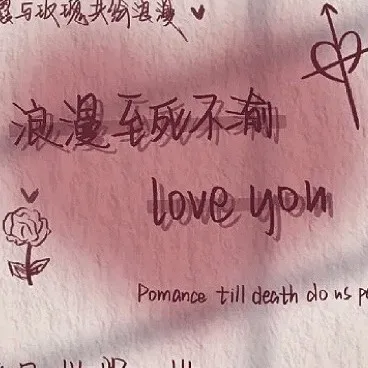 与玫瑰共绘浪漫
浪漫至死不渝
love you
Pomance till death do us